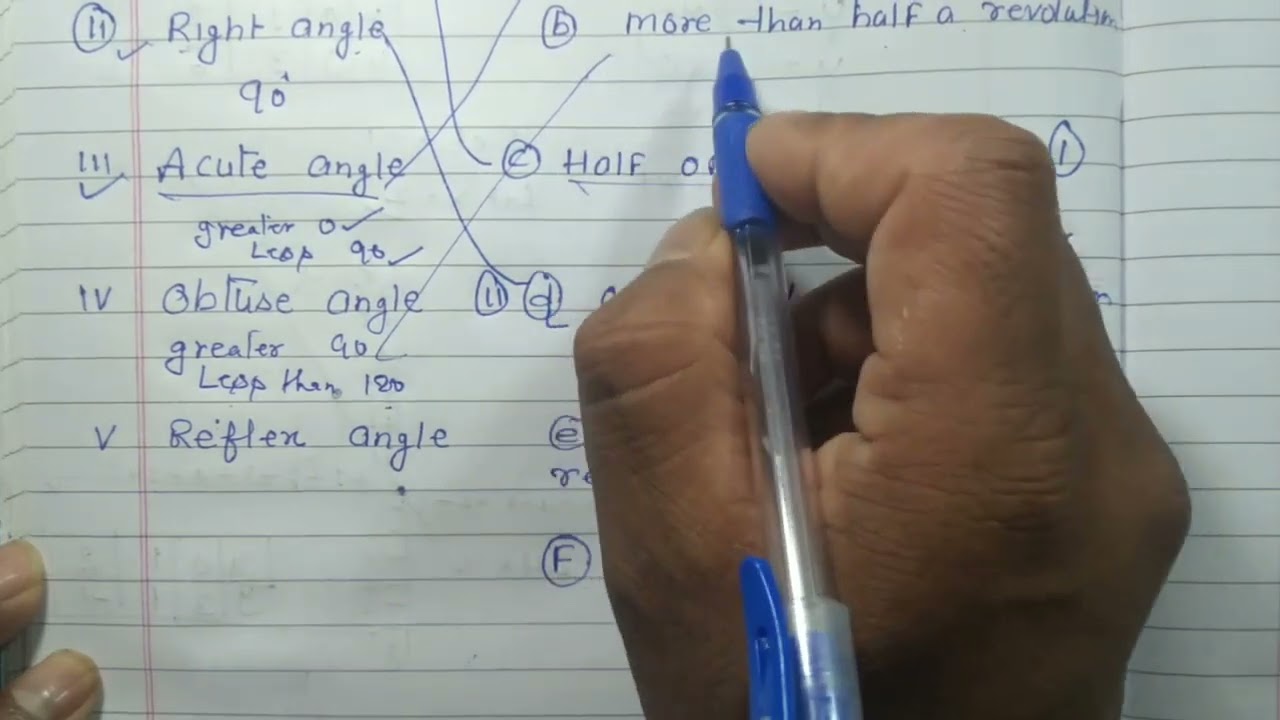 (ii) Right angle (b) more than half a revolution
90°
III Acute angle (c) Half (1)
greater 0
Less 90
IV Obtuse angle (ii) (d)
greater 90
Less than 180
V Reflex angle (e)
re
(F)